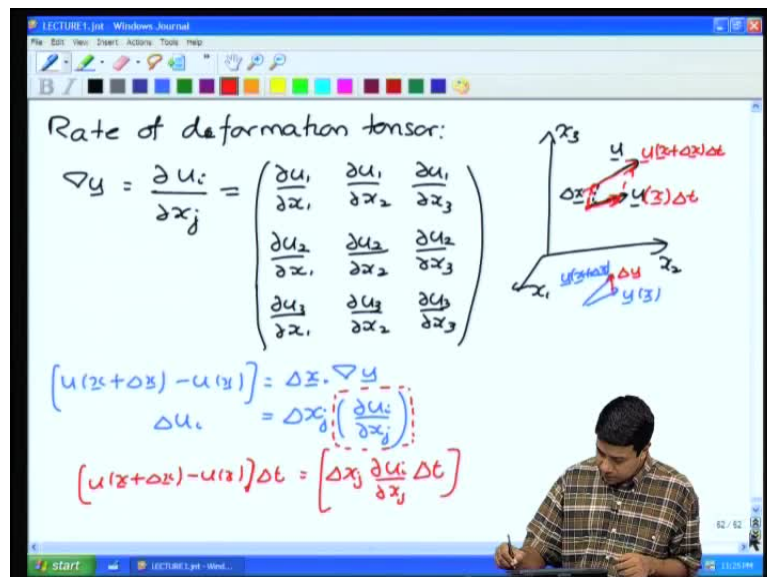 LECTURE1.jnt - Windows Journal
File Edit View Insert Actions Tools Help
B I
Rate of deformation tensor:
∇u = ∂ui/∂xj = ( ∂u1/∂x1 ∂u1/∂x2 ∂u1/∂x3
∂u2/∂x1 ∂u2/∂x2 ∂u2/∂x3
∂u3/∂x1 ∂u3/∂x2 ∂u3/∂x3 )
x3
u
u(x+Δx)Δt
Δx
u(x)Δt
x2
x1
u(x+Δx)
Δu
u(x)
[u(x+Δx)-u(x)] = Δx.∇u
Δui = Δxj (∂ui/∂xj)
[u(x+Δx)-u(x)]Δt = [Δxj ∂ui/∂xj Δt]
62 / 62
start
LECTURE1.jnt - Wind...